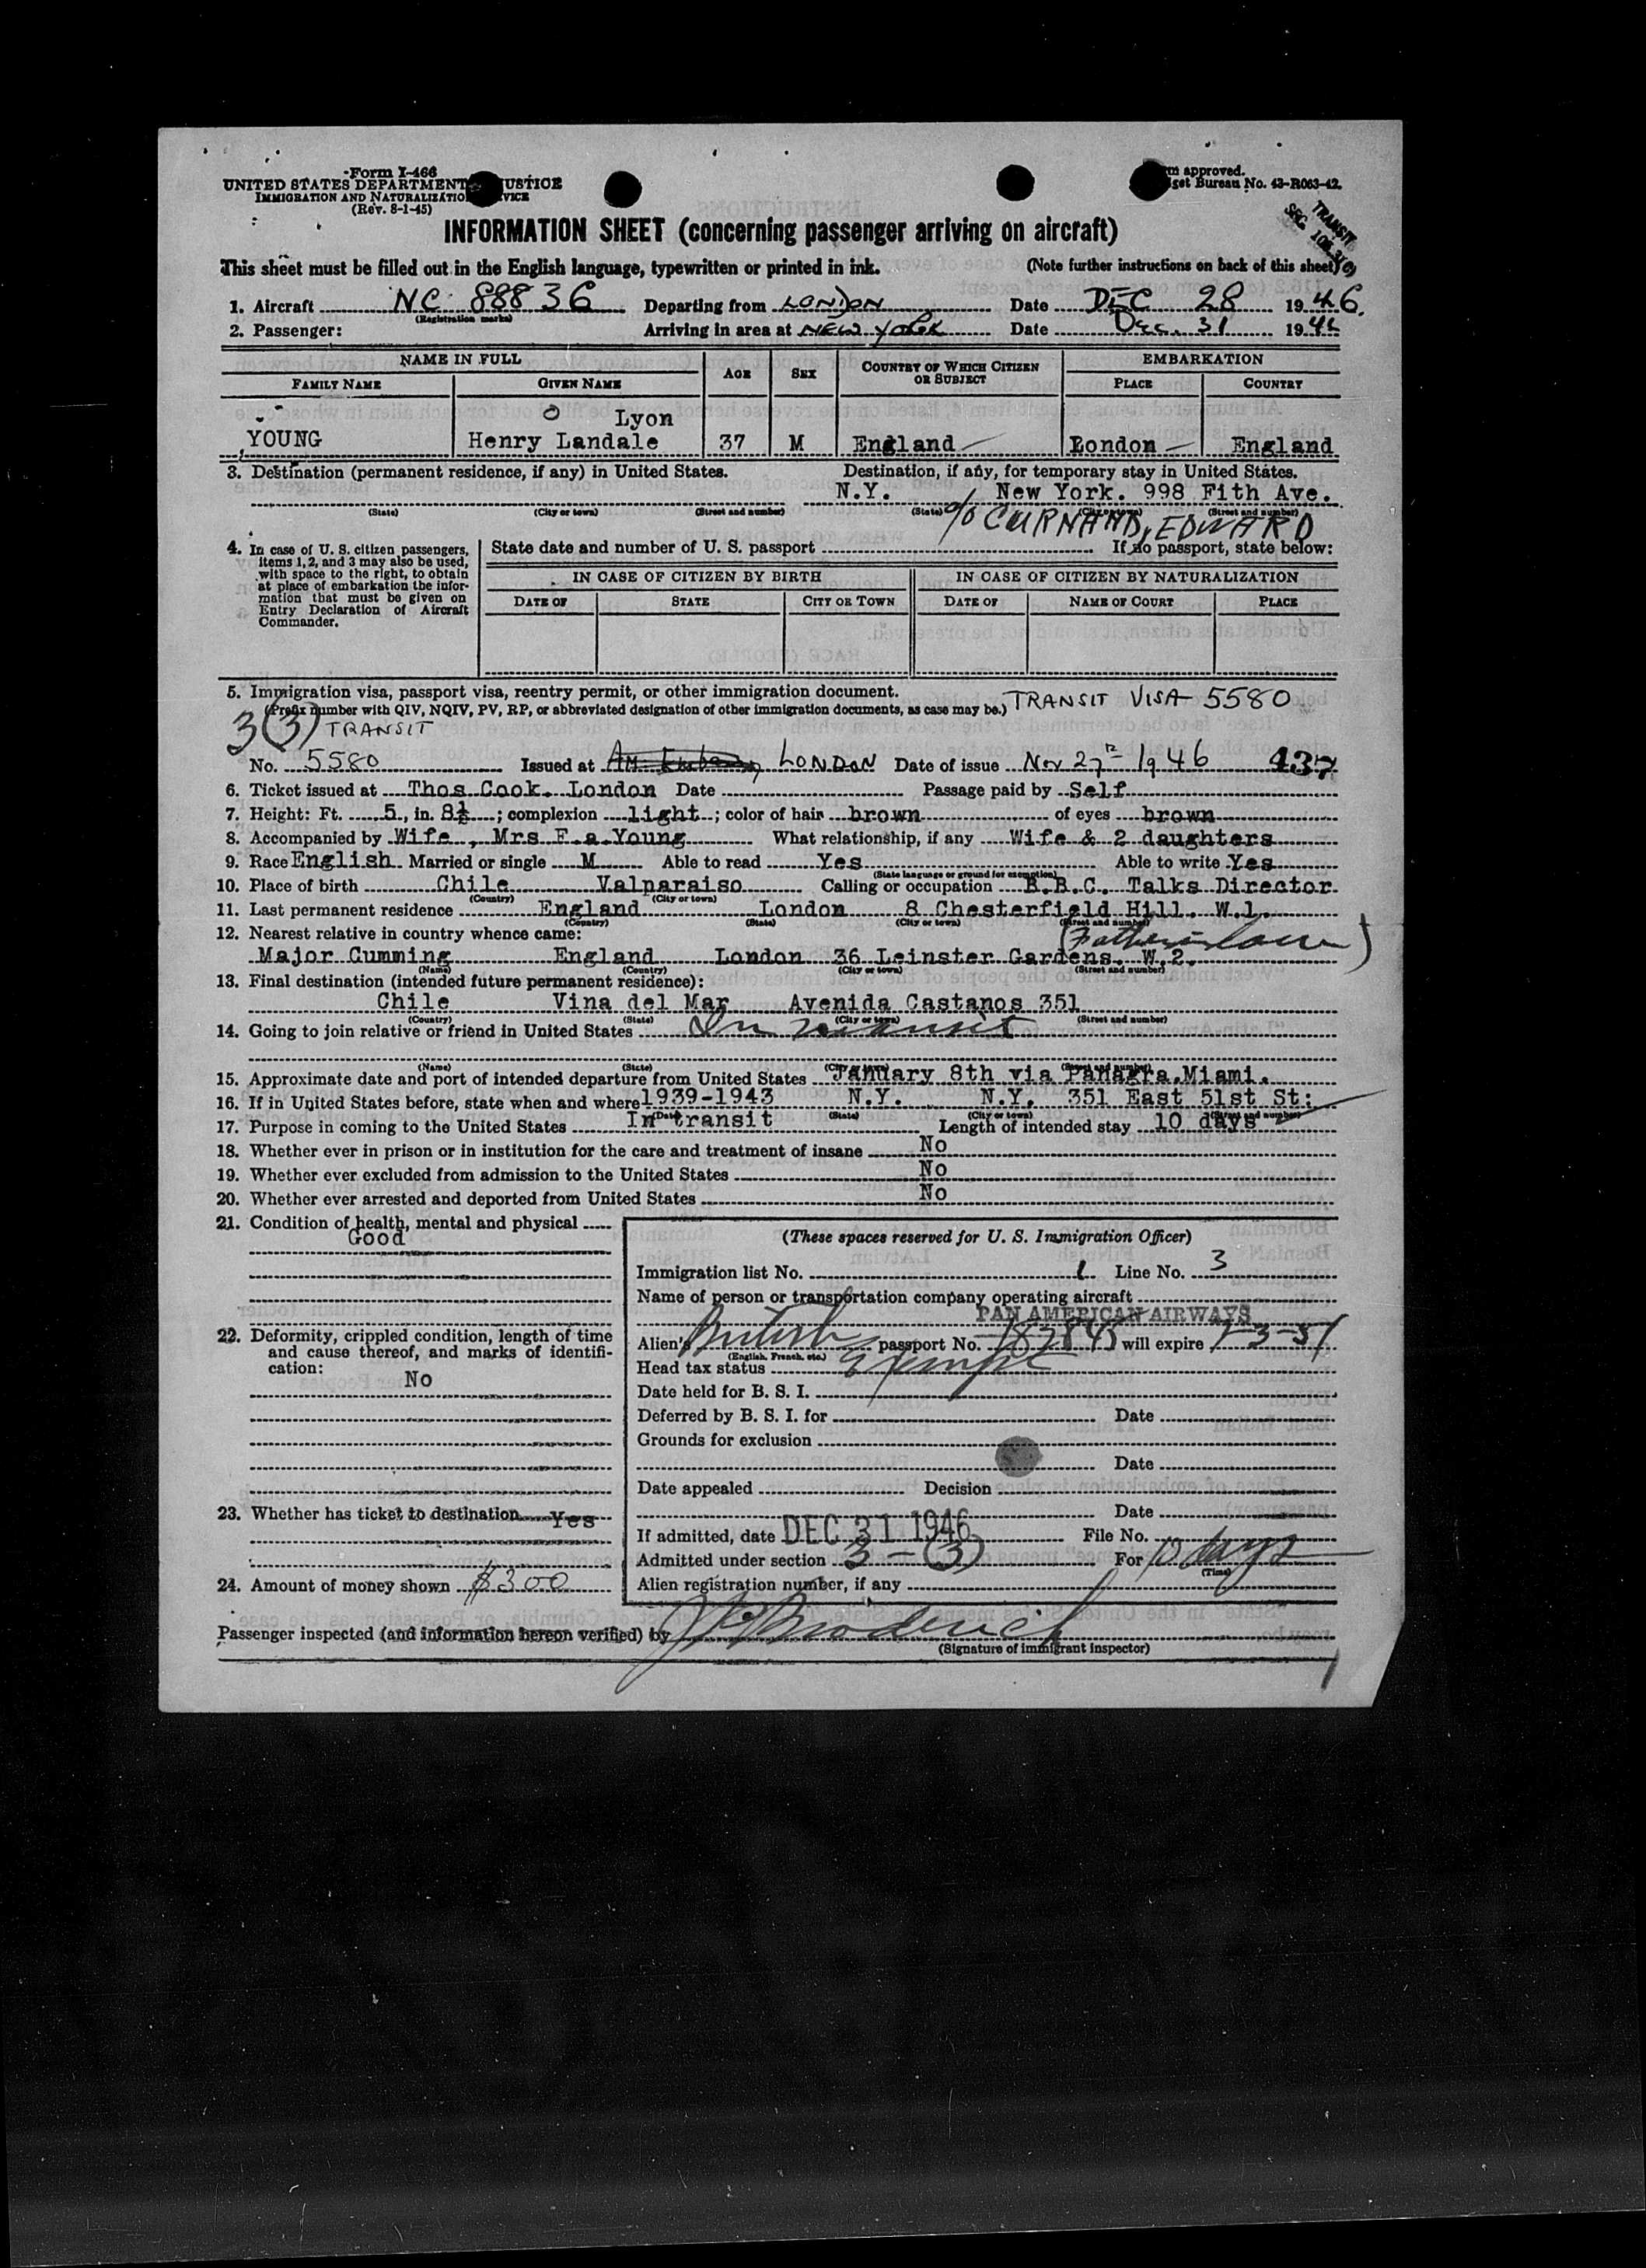 Form I-466
UNITED STATES DEPARTMENT JUSTICE
IMMIGRATION AND NATURALIZATION SERVICE
(Rev. 8-1-45)
approved.
Bureau No. 43-R063-42.
TRANSIT
SEC.
INFORMATION SHEET (concerning passenger arriving on aircraft)
This sheet must be filled out in the English language, typewritten or printed in ink. (Note further instructions on back of this sheet)
1. Aircraft NC 88836 Departing from LONDON Date DEC 28 1946.
(Registration marks)
2. Passenger: Arriving in area at NEW YORK Date Dec. 31 1946
NAME IN FULL AGE SEX COUNTRY OF WHICH CITIZEN OR SUBJECT EMBARKATION
FAMILY NAME GIVEN NAME PLACE COUNTRY
Lyon
YOUNG Henry Landale 37 M England London England
3. Destination (permanent residence, if any) in United States. Destination, if any, for temporary stay in United States.
N.Y. New York. 998 Fith Ave.
(State) (City or town) (Street and number) (State) (City or town) (Street and number)
c/o CURNAND, EDWARD
4. In case of U. S. citizen passengers, items 1, 2, and 3 may also be used, with space to the right, to obtain at place of embarkation the information that must be given on Entry Declaration of Aircraft Commander.
State date and number of U. S. passport If no passport, state below:
IN CASE OF CITIZEN BY BIRTH IN CASE OF CITIZEN BY NATURALIZATION
DATE OF STATE CITY OR TOWN DATE OF NAME OF COURT PLACE
5. Immigration visa, passport visa, reentry permit, or other immigration document.
(Prefix number with QIV, NQIV, PV, RP, or abbreviated designation of other immigration documents, as case may be.) TRANSIT VISA 5580
3(3) TRANSIT
No. 5580 Issued at LONDON Date of issue Nov 27 1946 437
6. Ticket issued at Thos Cook. London Date Passage paid by Self
7. Height: Ft. 5, in. 8½; complexion light; color of hair brown of eyes brown
8. Accompanied by Wife, Mrs F.a.Young What relationship, if any Wife & 2 daughters
9. Race English Married or single M Able to read Yes Able to write Yes
(State language or ground for exemption)
10. Place of birth Chile Valparaiso Calling or occupation B.B.C. Talks Director
(Country) (City or town)
11. Last permanent residence England London 8 Chesterfield Hill. W.1.
(Country) (State) (City or town) (Street and number)
12. Nearest relative in country whence came: (Father in law)
Major Cumming England London 36 Leinster Gardens. W.2.
(Name) (Country) (City or town) (Street and number)
13. Final destination (intended future permanent residence):
Chile Vina del Mar Avenida Castanos 351
(Country) (State) (City or town) (Street and number)
14. Going to join relative or friend in United States In transit
(Name) (State) (City or town) (Street and number)
15. Approximate date and port of intended departure from United States January 8th via Panagra.Miami.
16. If in United States before, state when and where 1939-1943 N.Y. N.Y. 351 East 51st St:
(Date) (State) (City or town) (Street and number)
17. Purpose in coming to the United States In transit Length of intended stay 10 days
18. Whether ever in prison or in institution for the care and treatment of insane No
19. Whether ever excluded from admission to the United States No
20. Whether ever arrested and deported from United States No
21. Condition of health, mental and physical
Good
22. Deformity, crippled condition, length of time and cause thereof, and marks of identification:
No
23. Whether has ticket to destination Yes
24. Amount of money shown $300
(These spaces reserved for U. S. Immigration Officer)
Immigration list No. 1 Line No. 3
Name of person or transportation company operating aircraft
PAN AMERICAN AIRWAYS
Alien's British passport No. will expire
(English, French, etc.)
Head tax status Exempt
Date held for B. S. I.
Deferred by B. S. I. for Date
Grounds for exclusion
Date
Date appealed Decision
Date
If admitted, date DEC 31 1946 File No.
Admitted under section 3-(3) For 10 days
(Time)
Alien registration number, if any
Passenger inspected (and information hereon verified) by
(Signature of immigrant inspector)